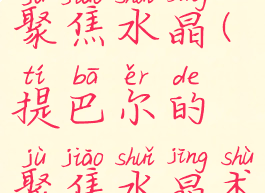 jù jiāo shuǐ jīng
聚焦水晶(
tí bā ěr de
提巴尔的
jù jiāo shuǐ jīng shù
聚焦水晶术